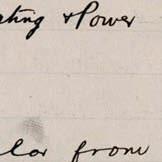 ating & Power
lar from